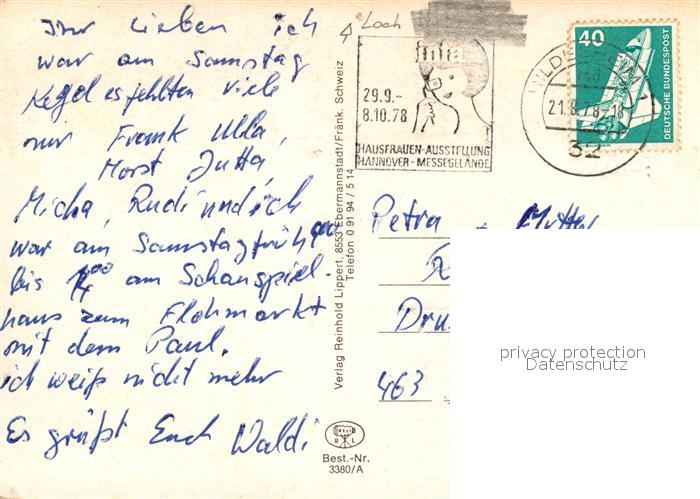 Ihr Lieben ich
war am Samstag
Kegel es fehlten viele
nur Frank Ulla,
Horst Jutta,
Micha, Rudi und ich
war am Samstag früh 900
bis 1400 am Schauspiel-
haus zum Flohmarkt
mit dem Paul.
ich weiß nicht mehr
Es grüßt Euch Waldi
Loch
29.9.-
8.10.78
HAUSFRAUEN-AUSSTELLUNG
HANNOVER-MESSEGELÄNDE
21.8.78-18
32
40
DEUTSCHE BUNDESPOST
Verlag Reinhold Lippert, 8553 Ebermannstadt/Fränk. Schweiz
Telefon 0 91 94 / 5 14
R L
Best.-Nr.
3380/A
Petra
463
privacy protection
Datenschutz